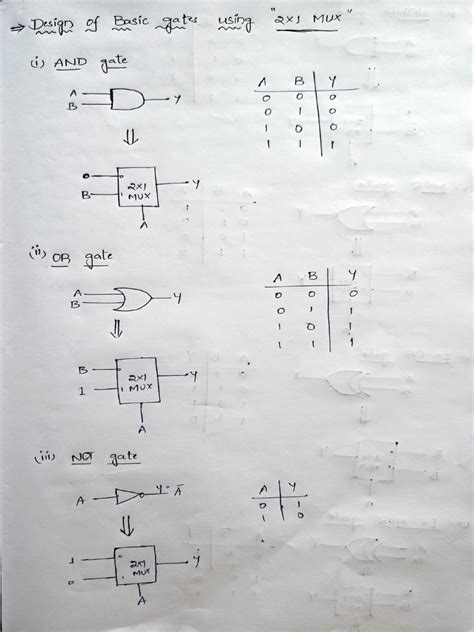 ⇒ Design of Basic gates using "2×1 MUX"
(i) AND gate
A
B
Y
A B Y
0 0 0
0 1 0
1 0 0
1 1 1
⇓
0
B
2×1
MUX
Y
A
(ii) OR gate
A
B
Y
A B Y
0 0 0
0 1 1
1 0 1
1 1 1
⇓
B
1
2×1
MUX
Y
A
(iii) NOT gate
A
Y = A̅
A Y
0 1
1 0
⇓
1
0
2×1
MUX
Y
A